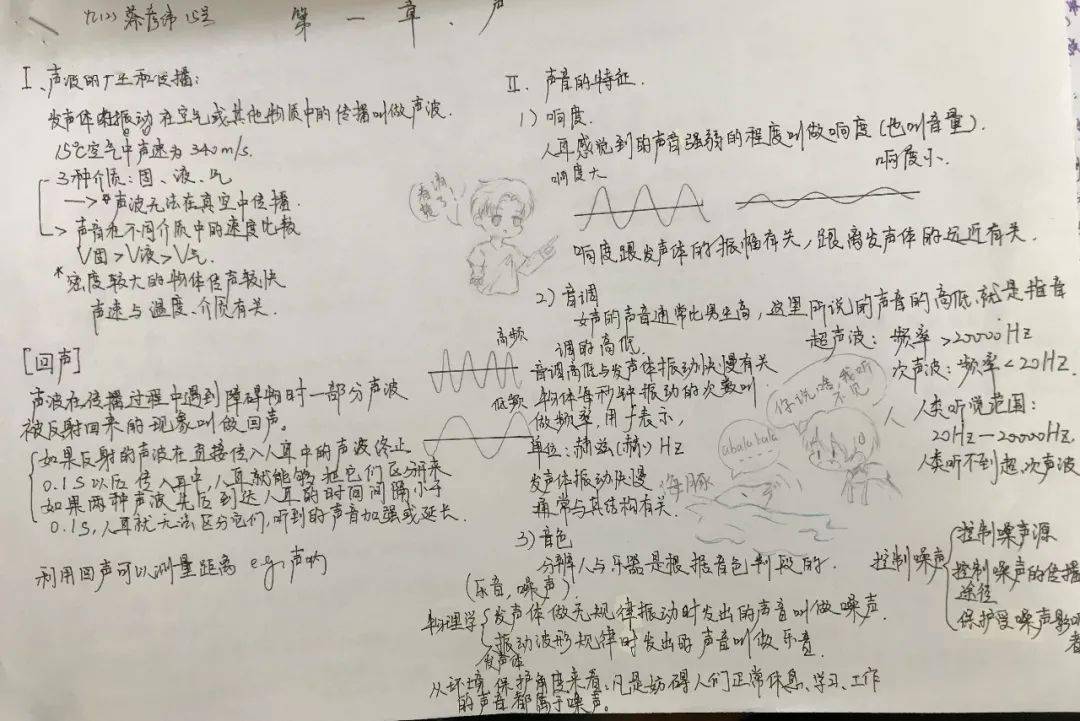 第一章、声
I、声波的产生和传播:
发声体的振动在空气或其他物质中的传播叫做声波.
15℃空气中声速为340m/s.
3种介质:固、液、气
→*声波无法在真空中传播.
声音在不同介质中的速度比较
V固>V液>V气.
*密度较大的物体传声较快
声速与温度、介质有关.
[回声]
声波在传播过程中遇到障碍物时一部分声波
被反射回来的现象叫做回声。
如果反射的声波在直接传入人耳中的声波终止
0.1S以后传入耳中,人耳就能够把它们区分开来
如果两种声波先后到达人耳的时间间隔小于
0.1s,人耳就无法区分它们,听到的声音加强或延长.
利用回声可以测量距离 e.g.声呐
II、声音的特征.
1)响度.
人耳感觉到的声音强弱的程度叫做响度(也叫音量).
响度大
响度小.
响度跟发声体的振幅有关,跟离发声体的远近有关.
2)音调
女声的声音通常比男生高,这里所说的声音的高低就是指音
调的高低.
高频
低频
音调高低与发声体振动快慢有关
物体每秒钟振动的次数叫
做频率,用f表示,
单位:赫兹(赫) Hz
发声体振动快慢
通常与其结构有关.
超声波:频率>20000Hz
次声波:频率<20Hz.
人类听觉范围:
20Hz—20000Hz.
人类听不到超、次声波
你说啥,我听
不见
abalabala
海豚
3)音色
分辨人与乐器是根据音色判段的.
(乐音,噪声)
物理学
发声体做无规律振动时发出的声音叫做噪声.
振动波形规律时发出的声音叫做乐音.
发声体
从环境保护角度来看,凡是妨碍人们正常休息、学习、工作
的声音都属于噪声。
控制噪声
控制噪声源
控制噪声的传播
途径
保护受噪声影响
者